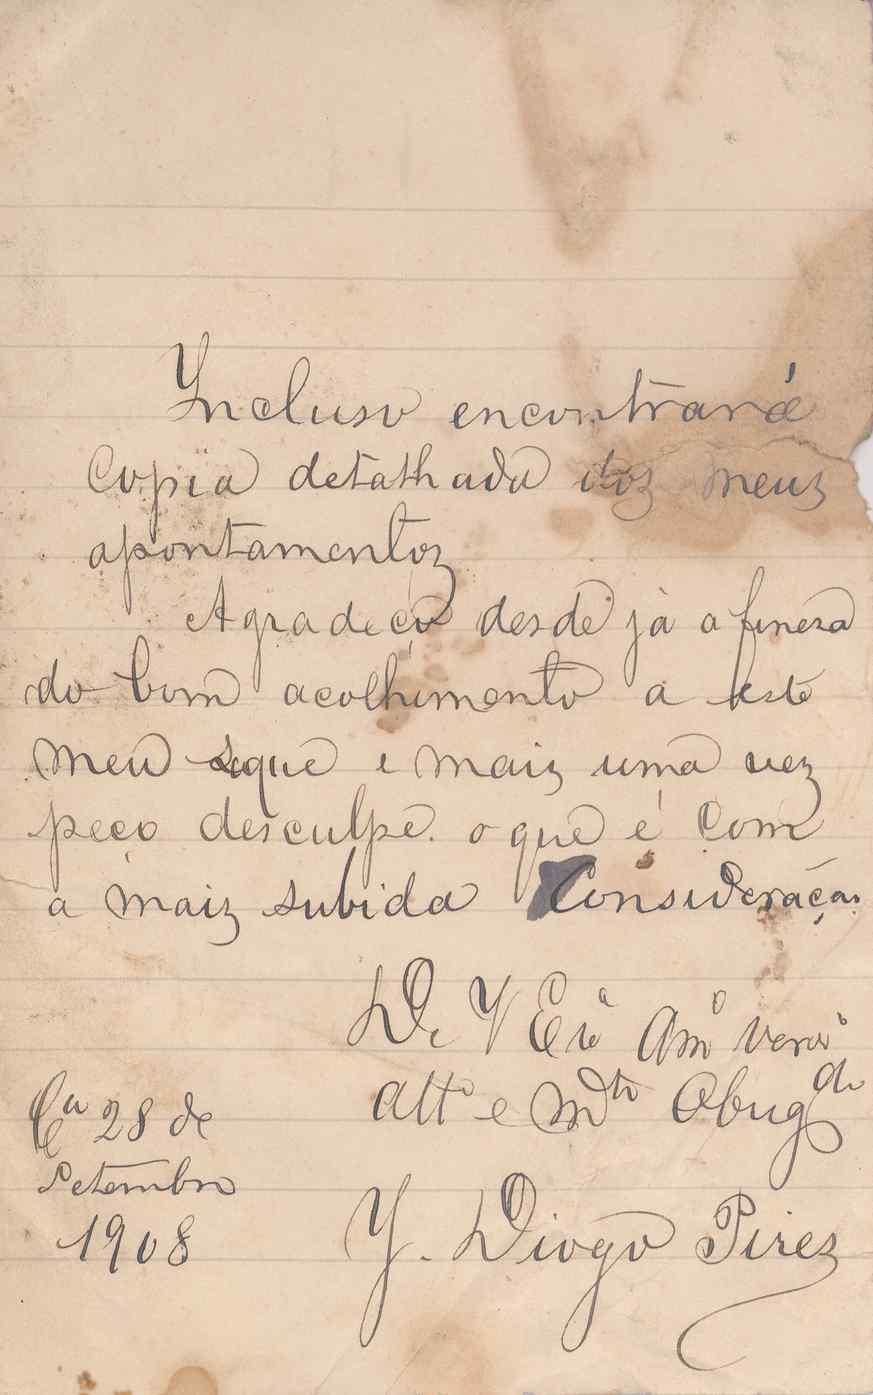 Incluso encontrará
Copia detathada dos meus
apontamentos
Agradeço desde já a fineza
do bom acolhimento a este
meu seque e mais uma vez
peço desculpe. o que é Com
a mais subida Consideração
De V Exª Amº Verº
Attº e Mto Obrigdo
Cª 28 de
Setembro
1908
J. Diogo Pires